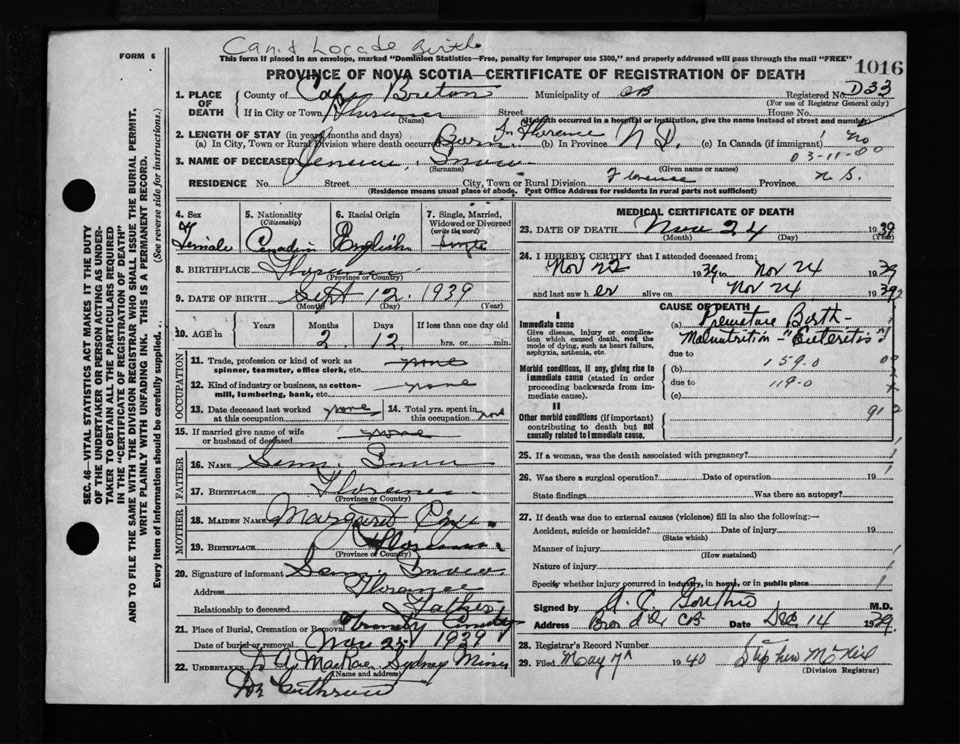 Can't Locate Birth
FORM 6
This form if placed in an envelope, marked "Dominion Statistics—Free, penalty for improper use $300," and properly addressed will pass through the mail "FREE"
PROVINCE OF NOVA SCOTIA—CERTIFICATE OF REGISTRATION OF DEATH
1016
1. PLACE OF DEATH County of Cape Breton Municipality of CB Registered No. D33
(For use of Registrar General only)
If in City or Town Florence Street House No.
(Name) (If death occurred in a hospital or institution, give the name instead of street and number)
2. LENGTH OF STAY (in years, months and days) In Florence
(a) In City, Town or Rural Division where death occurred (b) In Province (c) In Canada (if immigrant) no
03-11-00
3. NAME OF DECEASED Snow
(Surname) (Given name or names)
RESIDENCE No. Street City, Town or Rural Division Florence Province N.S.
(Residence means usual place of abode. Post Office Address for residents in rural parts not sufficient)
4. Sex Female
5. Nationality (Citizenship) Canadian
6. Racial Origin English
7. Single, Married, Widowed or Divorced (write the word) Single
8. BIRTHPLACE Florence
(Province or Country)
9. DATE OF BIRTH Sept 12 1939
(Month) (Day) (Year)
10. AGE in Years Months Days If less than one day old
2 12 hrs. or min.
OCCUPATION
11. Trade, profession or kind of work as spinner, teamster, office clerk, etc. none
12. Kind of industry or business, as cotton-mill, lumbering, bank, etc. none
13. Date deceased last worked at this occupation none 14. Total yrs. spent in this occupation
15. If married give name of wife or husband of deceased none
FATHER
16. NAME Sam Snow
17. BIRTHPLACE Florence
(Province or Country)
MOTHER
18. MAIDEN NAME Margaret
19. BIRTHPLACE Florence
(Province or Country)
20. Signature of informant Sam Snow
Address Florence
Relationship to deceased Father
21. Place of Burial, Cremation or Removal Trinity Cemetery
Date of burial or removal Nov 25 1939
22. UNDERTAKER A. MacRae Sydney Mines
(Name and address)
MEDICAL CERTIFICATE OF DEATH
23. DATE OF DEATH Nov 24 1939
(Month) (Day) (Year)
24. I HEREBY CERTIFY that I attended deceased from:
Nov 22 1939 to Nov 24 1939
and last saw her alive on Nov 24 1939
CAUSE OF DEATH
I
Immediate cause
Give disease, injury or complication which caused death, not the mode of dying, such as heart failure, asphyxia, asthenia, etc.
(a) Premature Birth
Malnutrition - "Enteritis"
due to
Morbid conditions, if any, giving rise to immediate cause (stated in order proceeding backwards from immediate cause).
(b) 159.0
due to 119.0
(c)
II
Other morbid conditions (if important) contributing to death but not causally related to immediate cause.
91
25. If a woman, was the death associated with pregnancy?
26. Was there a surgical operation? Date of operation 19
State findings Was there an autopsy?
27. If death was due to external causes (violence) fill in also the following:—
Accident, suicide or homicide? Date of injury 19
(State which)
Manner of injury
(How sustained)
Nature of injury
Specify whether injury occurred in industry, in home, or in public place
Signed by M.D.
Address CB Date Dec 14 1939
28. Registrar's Record Number
29. Filed May 7 1940
(Division Registrar)
SEC. 46—VITAL STATISTICS ACT MAKES IT THE DUTY OF THE UNDERTAKER OR PERSON ACTING AS UNDERTAKER TO OBTAIN ALL THE PARTICULARS REQUIRED IN THE "CERTIFICATE OF REGISTRATION OF DEATH" AND TO FILE THE SAME WITH THE DIVISION REGISTRAR WHO SHALL ISSUE THE BURIAL PERMIT.
WRITE PLAINLY WITH UNFADING INK. THIS IS A PERMANENT RECORD.
Every item of information should be carefully supplied. (See reverse side for instructions.)